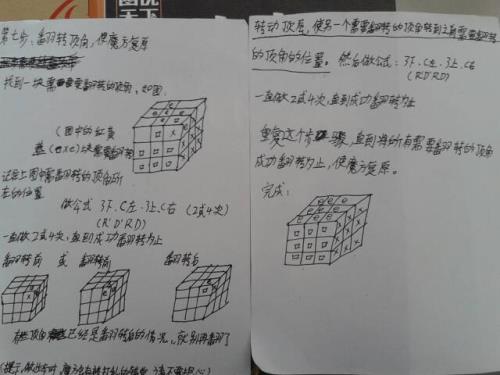 第七步:翻转顶角,使魔方复原
找到一块需要翻转的顶角,如图
(图中的
块需要翻转
记住上图中需翻转的顶角所
在的位置
做公式 3下.C左.3上.C右 (2或4次)
(R'D'RD)
一直做2或4次,直到成功翻转为止
翻转前 或 翻转前 翻转后
顶角已经是翻转后的情况,就别再翻了
(提示,做
转动顶层,使另一个需要翻转的顶角转到之前需要翻转
的顶角的位置。然后做公式:3下.C左.3上.C右
(R'D'RD)
一直做2或4次,直到成功翻转为止
重复这个步骤,直到将所有需要翻转的顶角
成功翻转为止,使魔方复原。
完成: